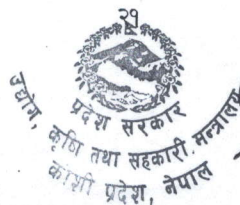 २१
प्रदेश सरकार
उद्योग, कृषि तथा सहकारी मन्त्रालय
कोशी प्रदेश, नेपाल